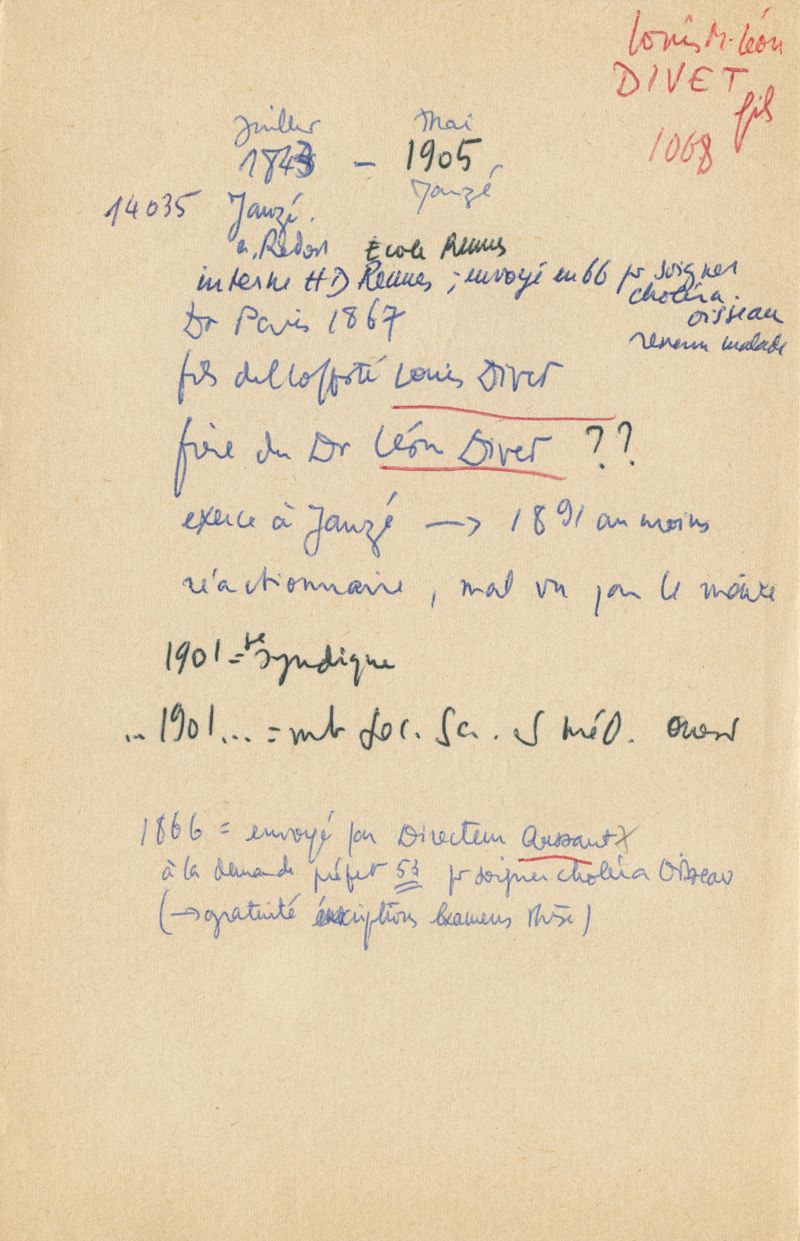 Louis M. Léon
DIVET
fils
1068
Juillet Mai
1843 – 1905
14035 Janzé. Janzé
c. Redon Ecole Rennes
interne HD Rennes ; envoyé en 66 pr soigner
choléra.
Oisseau
revenu malade
Dr Paris 1867
fils de l'off Louis Divet
frère du Dr Léon Divet ??
exerce à Janzé → 1891 au moins
réactionnaire, mal vu par le maire
1901 = se syndique
... 1901 ... = mb Soc. Sc. et méd. Ouest
1866 = envoyé par Directeur
à la demande préfet 53 pr soigner choléra Oisseau
(→ gratuité inscriptions Examens thèse)